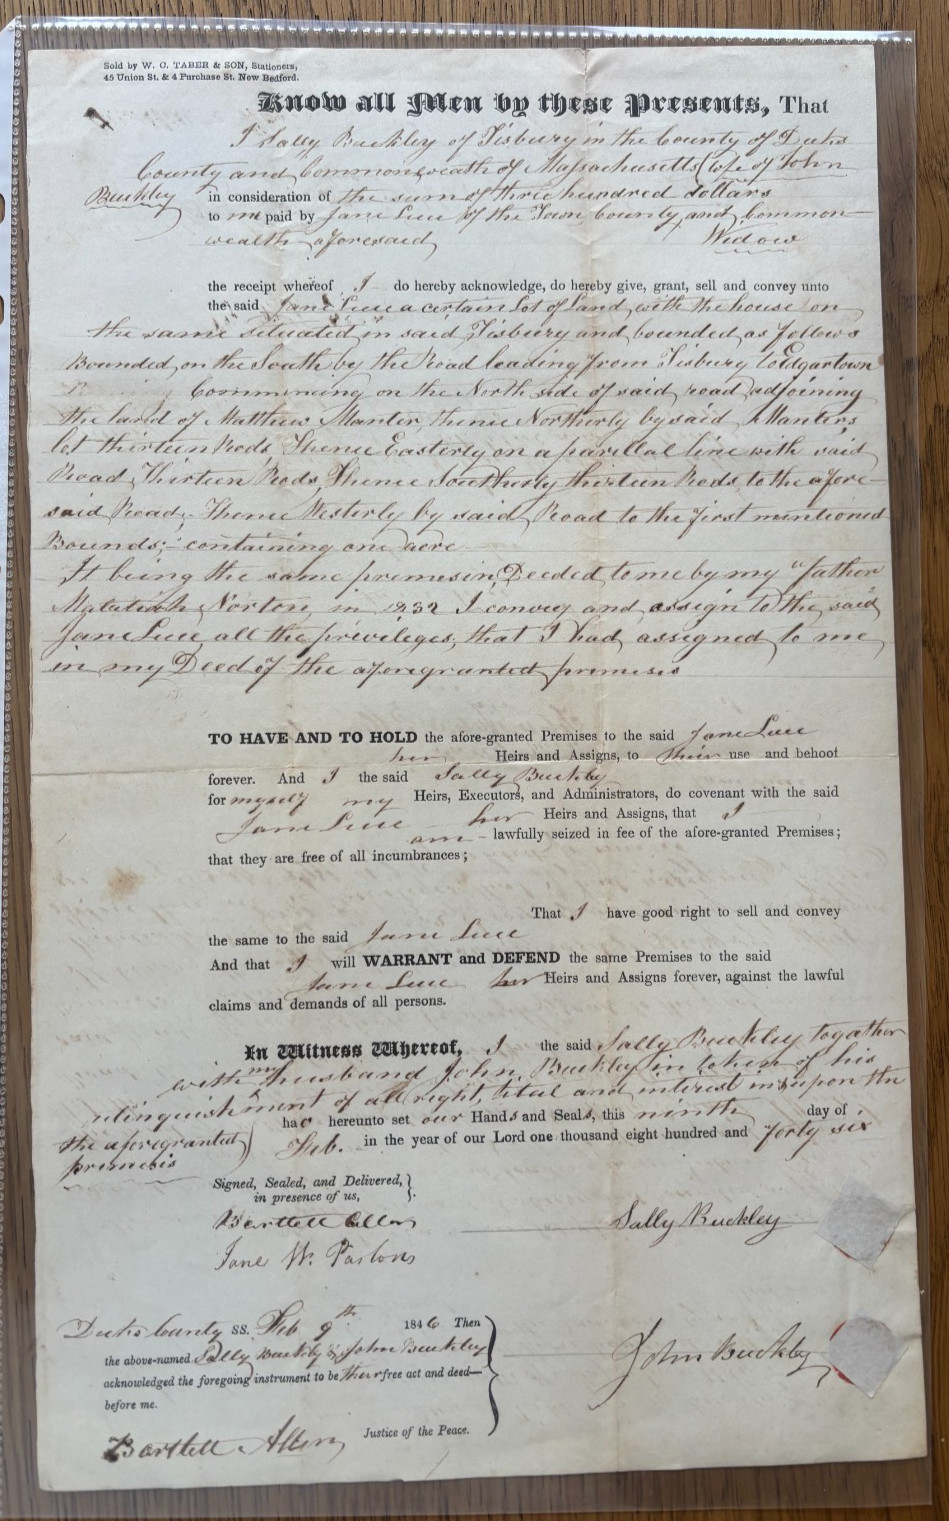 Sold by W. C. TABER & SON, Stationers,
45 Union St. & 4 Purchase St. New Bedford.
Know all Men by these Presents, That
I Sally Buckley of Tisbury in the County of Dukes
County and Commonweath of Massachusetts (wife of John
Buckley in consideration of the sum of three hundred dollars
to me paid by Jane Luce of the Town County and Common-
wealth aforesaid Widow
the receipt whereof I do hereby acknowledge, do hereby give, grant, sell and convey unto
the said Jane Luce a certain Lot of Land with the house on
the same situated in said Tisbury and bounded as follows
Bounded on the South by the Road leading from Tisbury to Edgartown
Commencing on the North side of said road adjoining
the land of Matthew Manter, thence Northerly by said Manters
lot thirteen Rods Thence Easterly on a parillal line with said
Road Thirteen Rods, Thence Southerly thirteen Rods to the afore-
said Road, Thence Westerly by said Road to the first mentioned
Bounds; containing one acre
It being the same Deeded to me by my father
Norton in 1832 I convey and assign to the said
Jane Luce all the privileges, that I had assigned to me
in my Deed of the aforegranted premises
TO HAVE AND TO HOLD the afore-granted Premises to the said Jane Luce
her Heirs and Assigns, to their use and behoof
forever. And I the said Sally Buckley
for myself my Heirs, Executors, and Administrators, do covenant with the said
Jane Luce her Heirs and Assigns, that I
am lawfully seized in fee of the afore-granted Premises;
that they are free of all incumbrances;
That I have good right to sell and convey
the same to the said Jane Luce
And that I will WARRANT and DEFEND the same Premises to the said
Jane Luce her Heirs and Assigns forever, against the lawful
claims and demands of all persons.
In Witness Whereof, I the said Sally Buckley togather
with my husband John Buckley in token of his
relinquishment of all right, titul and interest in & upon the
the aforegranted premesis
ha hereunto set our Hands and Seals, this ninth day of
Feb. in the year of our Lord one thousand eight hundred and forty six
Signed, Sealed, and Delivered,
in presence of us,
Bartlett Allen Sally Buckley
Jane W.
Dukes County SS. Feb 9th 1846 Then
the above-named Sally Buckley & John Buckley
acknowledged the foregoing instrument to be their free act and deed—
before me.
John Buckley
Bartlett Allen Justice of the Peace.